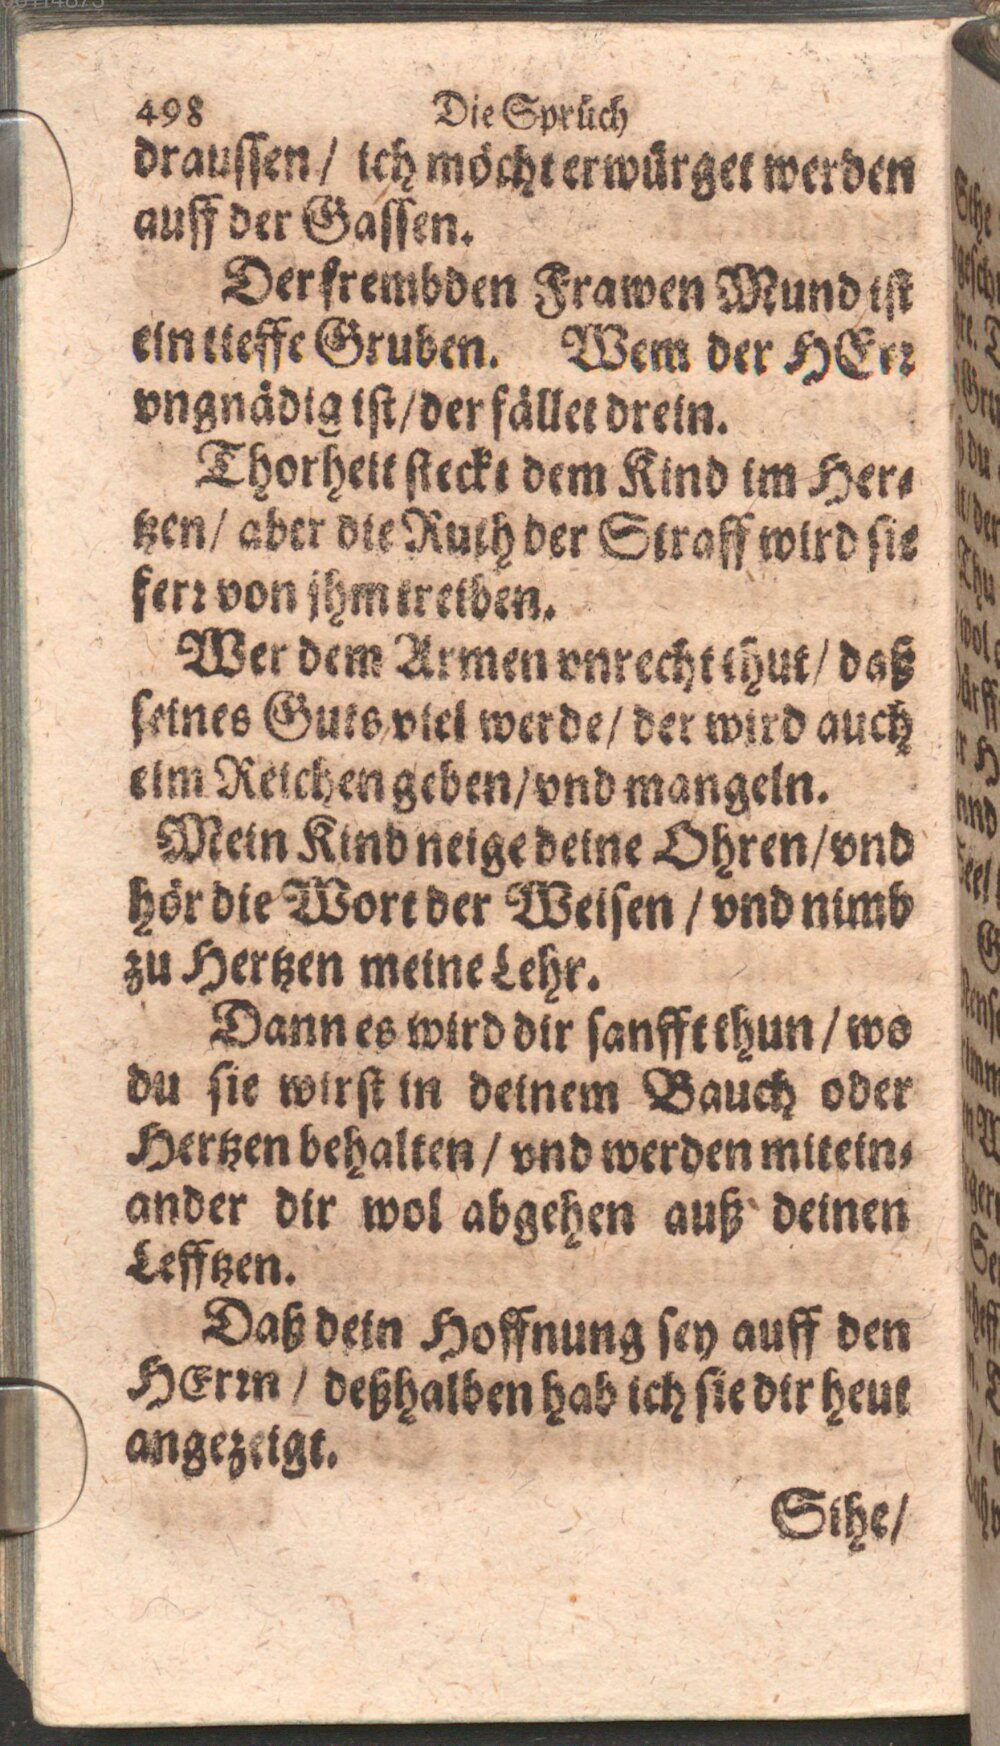 498 Die Sprüch
draussen / ich möcht erwürget werden
auff der Gassen.
Der frembden Frawen Mund ist
ein tieffe Gruben. Wem der HErr
vngnädig ist / der fället drein.
Thorheit steckt dem Kind im Her-
tzen / aber die Ruth der Straff wird sie
ferr von jhm treiben.
Wer dem Armen vnrecht thut / daß
seines Guts viel werde / der wird auch
eim Reichen geben / vnd mangeln.
Mein Kind neige deine Ohren / vnd
hör die Wort der Weisen / vnd nimb
zu Hertzen meine Lehr.
Dann es wird dir sanfft thun / wo
du sie wirst in deinem Bauch oder
Hertzen behalten / vnd werden mitein-
ander dir wol abgehen auß deinen
Lefftzen.
Daß dein Hoffnung sey auff den
HErrn / deßhalben hab ich sie dir heut
angezeigt.
Sihe /